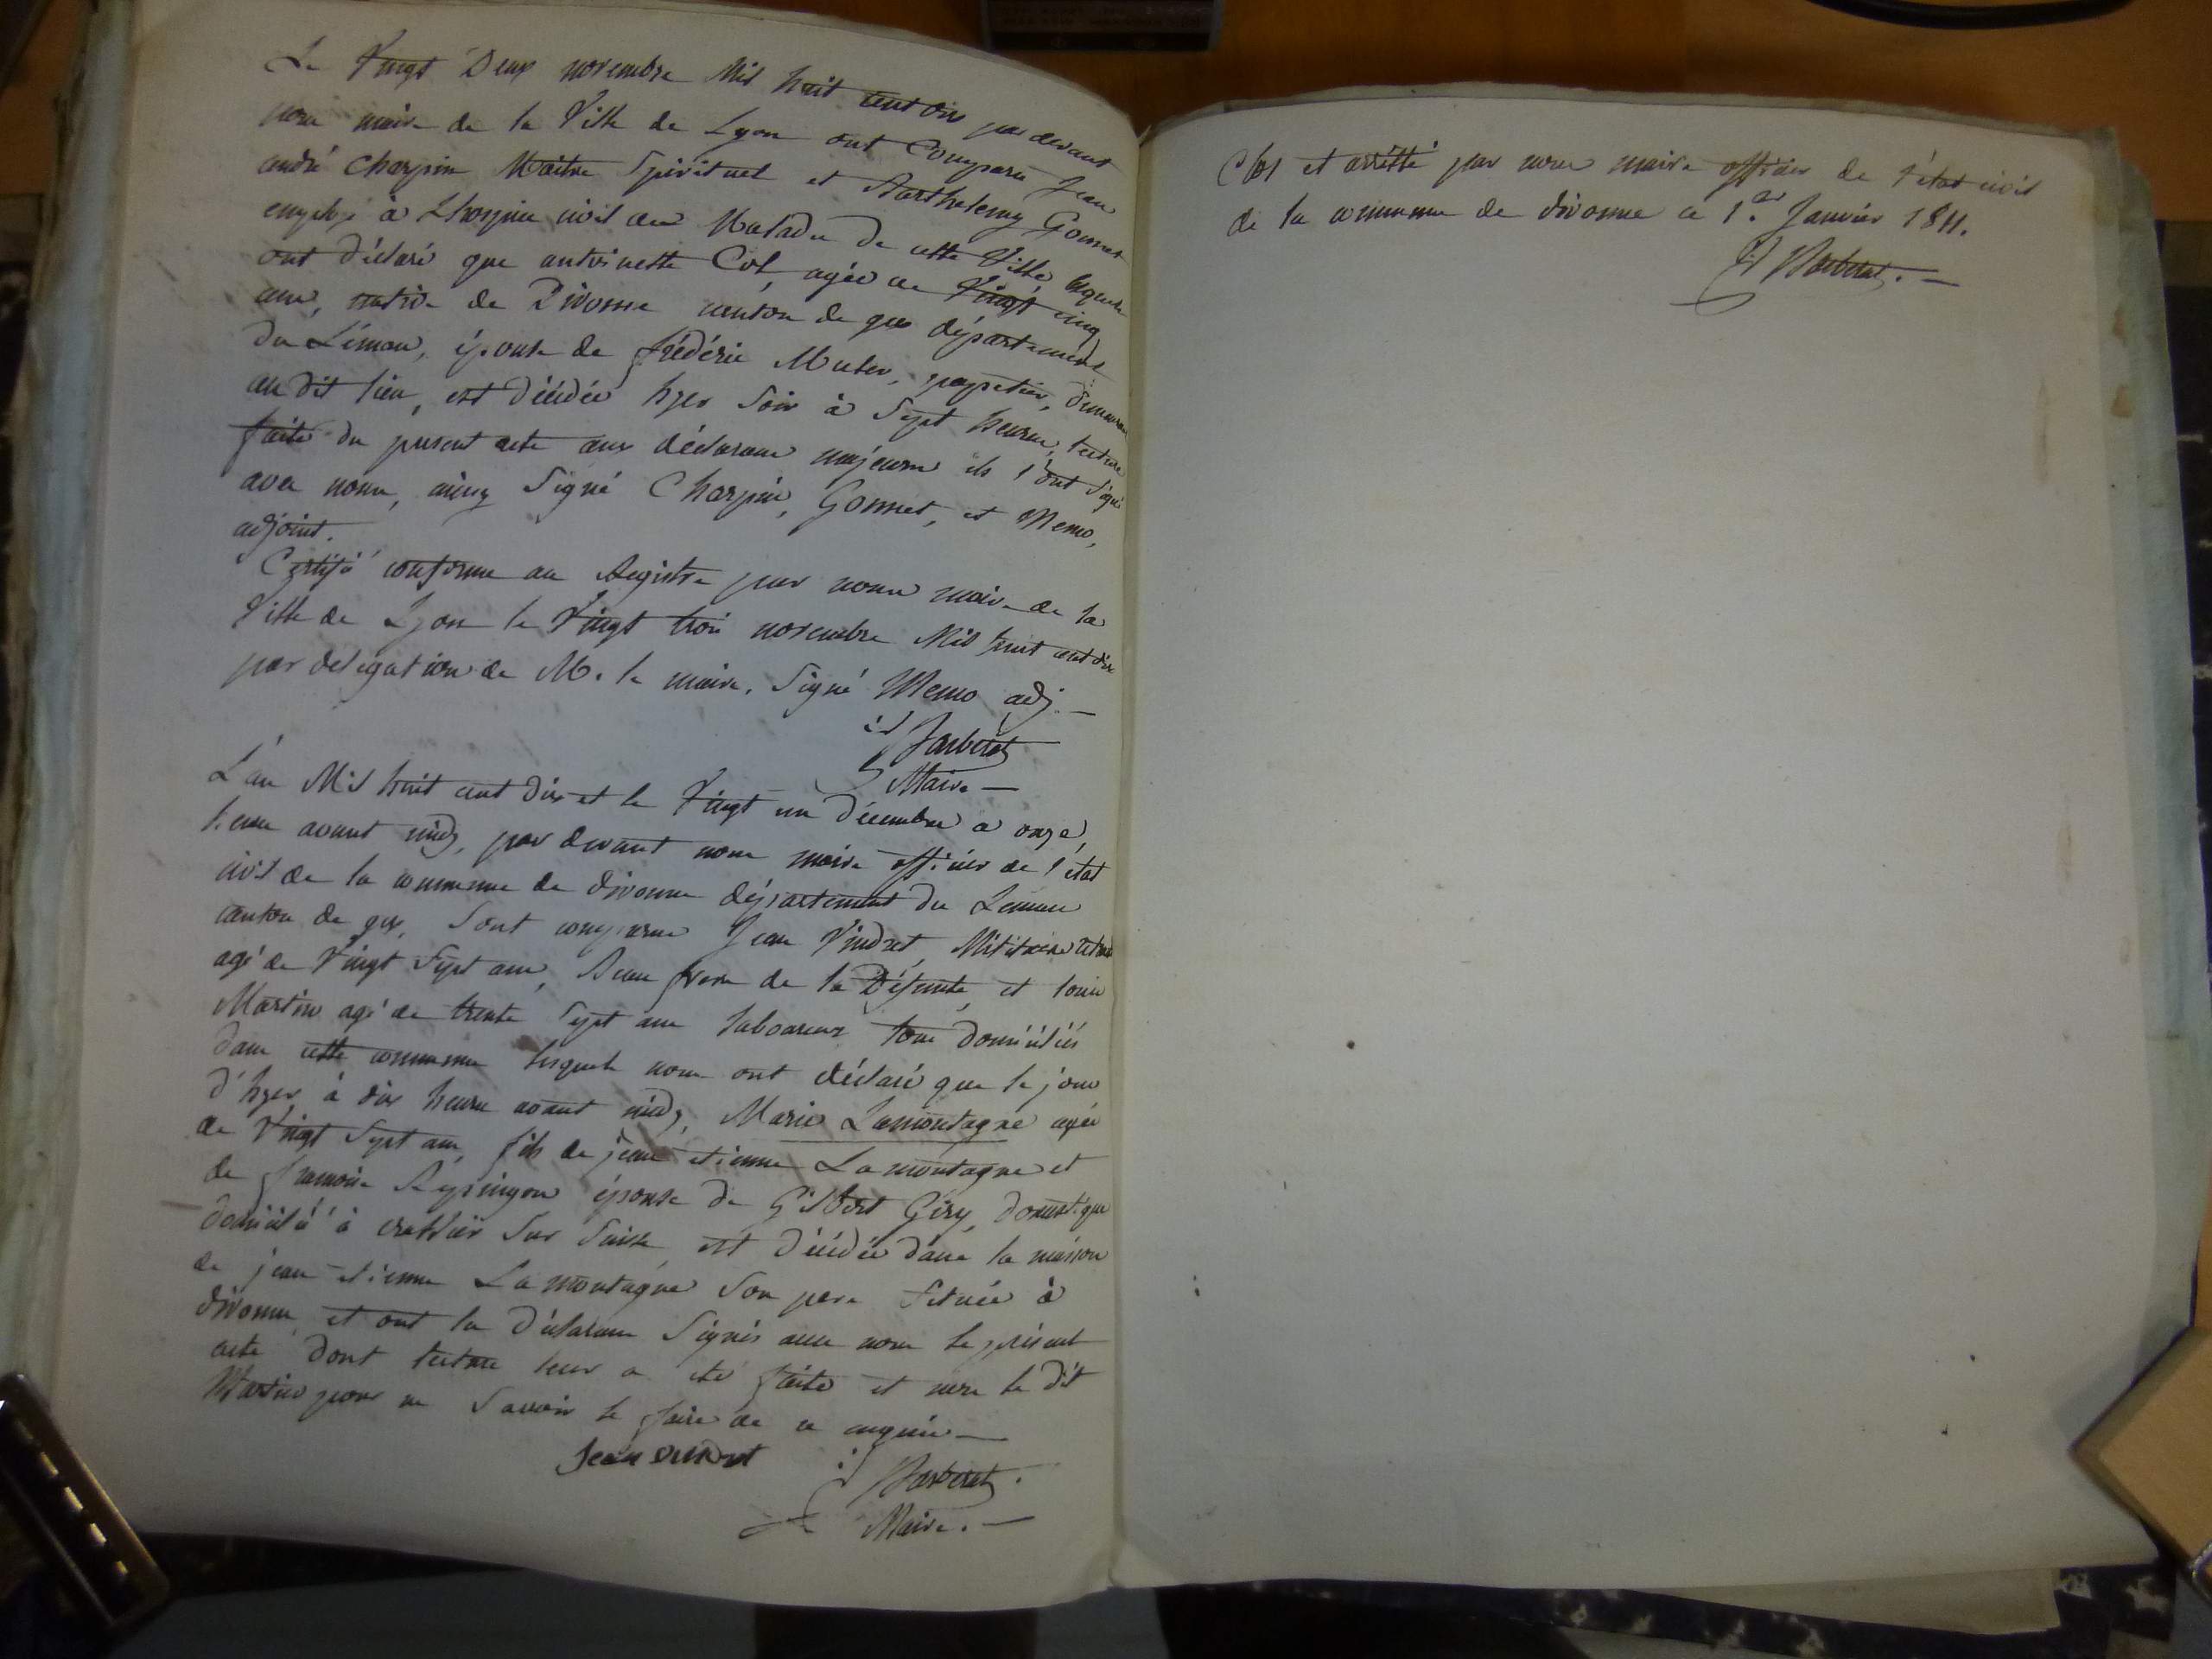 Le Vingt Deux novembre Mil huit cent dix par devant
nous maire de la Ville de Lyon ont Comparu Jean
andré Charpin Maitre Spirituel et Barthelemy Gonnet
employé à Lhospice civil des Malades de cette Ville, lesquels
ont déclaré que antoinette Col, agée de Vingt cinq
ans, native de Divonne canton de gex département
du Léman, épouse de frédéric Muler, papetier, demeurant
au dit lieu, est décédée hyer Soir à Sept heures, lecture
faite du present acte aux déclarans majeurs ils l'ont Signé
avec nous, ainsy Signé Charpin, Gonnet, et Memo,
adjoint.
Certifié conforme au Registre par nous maire de la
Ville de Lyon le Vingt trois novembre Mil huit cent dix
par delegation de M. le maire. Signé Memo adj.
Barberat
Maire
L'an Mil huit cent dix et le Vingt un Décembre à onze
heures avant midy, par devant nous maire officier de l'état
civil de la commune de divonne département du Leman
canton de gex, Sont comparus Jean Vindret Militaire
agé de Vingt Sept ans, Beau frere de la Défunte, et louis
Martin agé de trente Sept ans laboureur tous domiciliés
dans cette commune lesquels nous ont déclaré que le jour
d'hyer à dix heures avant midy, Marie Lamontagne agée
de Vingt Sept ans, fils de jean etienne Lamontagne et
de francoise épouse de Gilbert Géry, domestique
domicilié à Suisse est décédée dans la maison
de jean etienne Lamontagne Son pere Située à
divonne et ont les Déclarans Signés avec nous le présent
acte dont lecture leur a été faite et non le dit
Martin pour ne Savoir le faire de ce enquis
Jean Vindret
Barberat.
Maire.
Clos et arrêtté par nous maire officier de l'état civil
de la commune de divonne ce 1.er Janvier 1811.
Barberat.